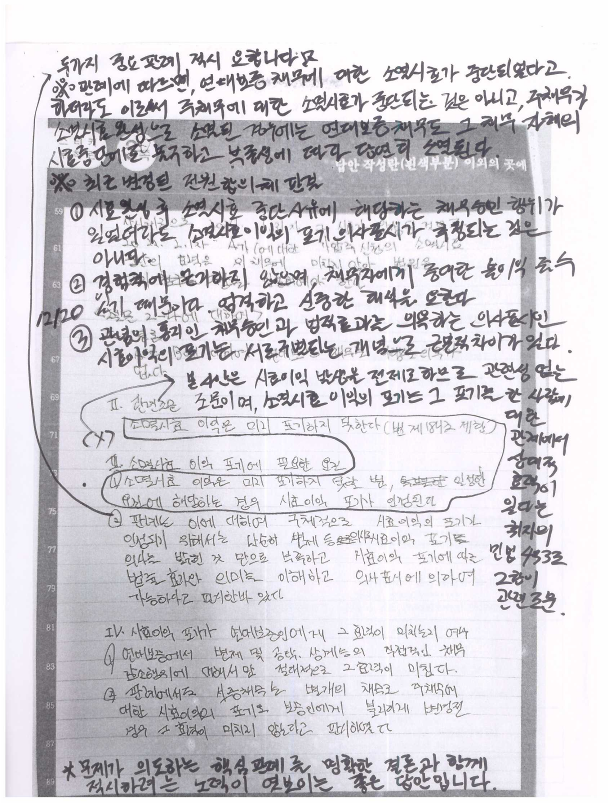 두가지 중요 판례 적시 요합니다
※ 판례에 따르면, 연대보증 채무에 대한 소멸시효가 중단되었다고
하더라도 이로써 주채무에 대한 소멸시효가 중단되는 것은 아니고, 주채무가
소멸시효 완성으로 소멸된 경우에는 연대보증채무도 그 채무 자체의
시효중단에도 불구하고 부종성에 따라 당연히 소멸된다
답안 작성란(흰색부분) 이외의 곳에
※ 최근 변경된 전원합의체 판결
① 시효완성 후 소멸시효 중단사유에 해당하는 채무승인 행위가
있었더라도 소멸시효이익의 포기 의사표시가 추정되는 것은
아니다
② 경험칙에 근거하지 않으며 채무자에게 중대한 불이익을 줄 수
있기 때문이다 엄격하고 신중한 해석을 요한다
12/20
③ 관념의 통지인 채무승인과 법적효과는 의욕하는 의사표시인
시효이익의 포기는 서로 구별되는 개념으로 근본적 차이가 있다.
본 사안은 시효이익 발생을 전제로 하므로 관련성 없는
조문이며, 소멸시효 이익의 포기는 그 포기를 한 사람에
대한
관계에서
상대적
효력이
있다는
취지의
민법 433조
2항이
관련 조문.
Ⅱ. 관련조문
소멸시효 이익은 미리 포기하지 못한다 (법 제184조 제1항)
Ⅲ. 소멸시효 이익 포기에 필요한 요건
① 소멸시효 이익은 미리 포기하지 못할 뿐, 일정한
요건에 해당하는 경우 시효이익의 포기가 인정된다
② 판례는 이에 대하여 구체적으로 시효이익의 포기가
인정되기 위해서는 단순히 변제 등 시효이익의 포기
의사는 밝힌 것 만으로 부족하고 시효이익의 포기에 따른
법률 효과와 의미를 이해하고 의사표시에 의하여
가능하다고 판례한바 있다
Ⅳ. 시효이익 포기가 연대보증인에게 그 효력이 미치는지 여부
① 연대보증에서 변제 및 공탁, 상계 등의 직접적인 채무
감소행위에 대해서만 절대적으로 그 효력이 미친다.
② 판례에서도 보증채무는 별개의 채무로 주채무에
대한 시효이익의 포기로 보증인에게 불리하게 변경된
경우 그 효력이 미치지 않는다고 판시하였다
* 문제가 의도하는 핵심 판례를 명확한 결론과 함께
적시하려는 노력이 엿보이는 좋은 답안입니다.